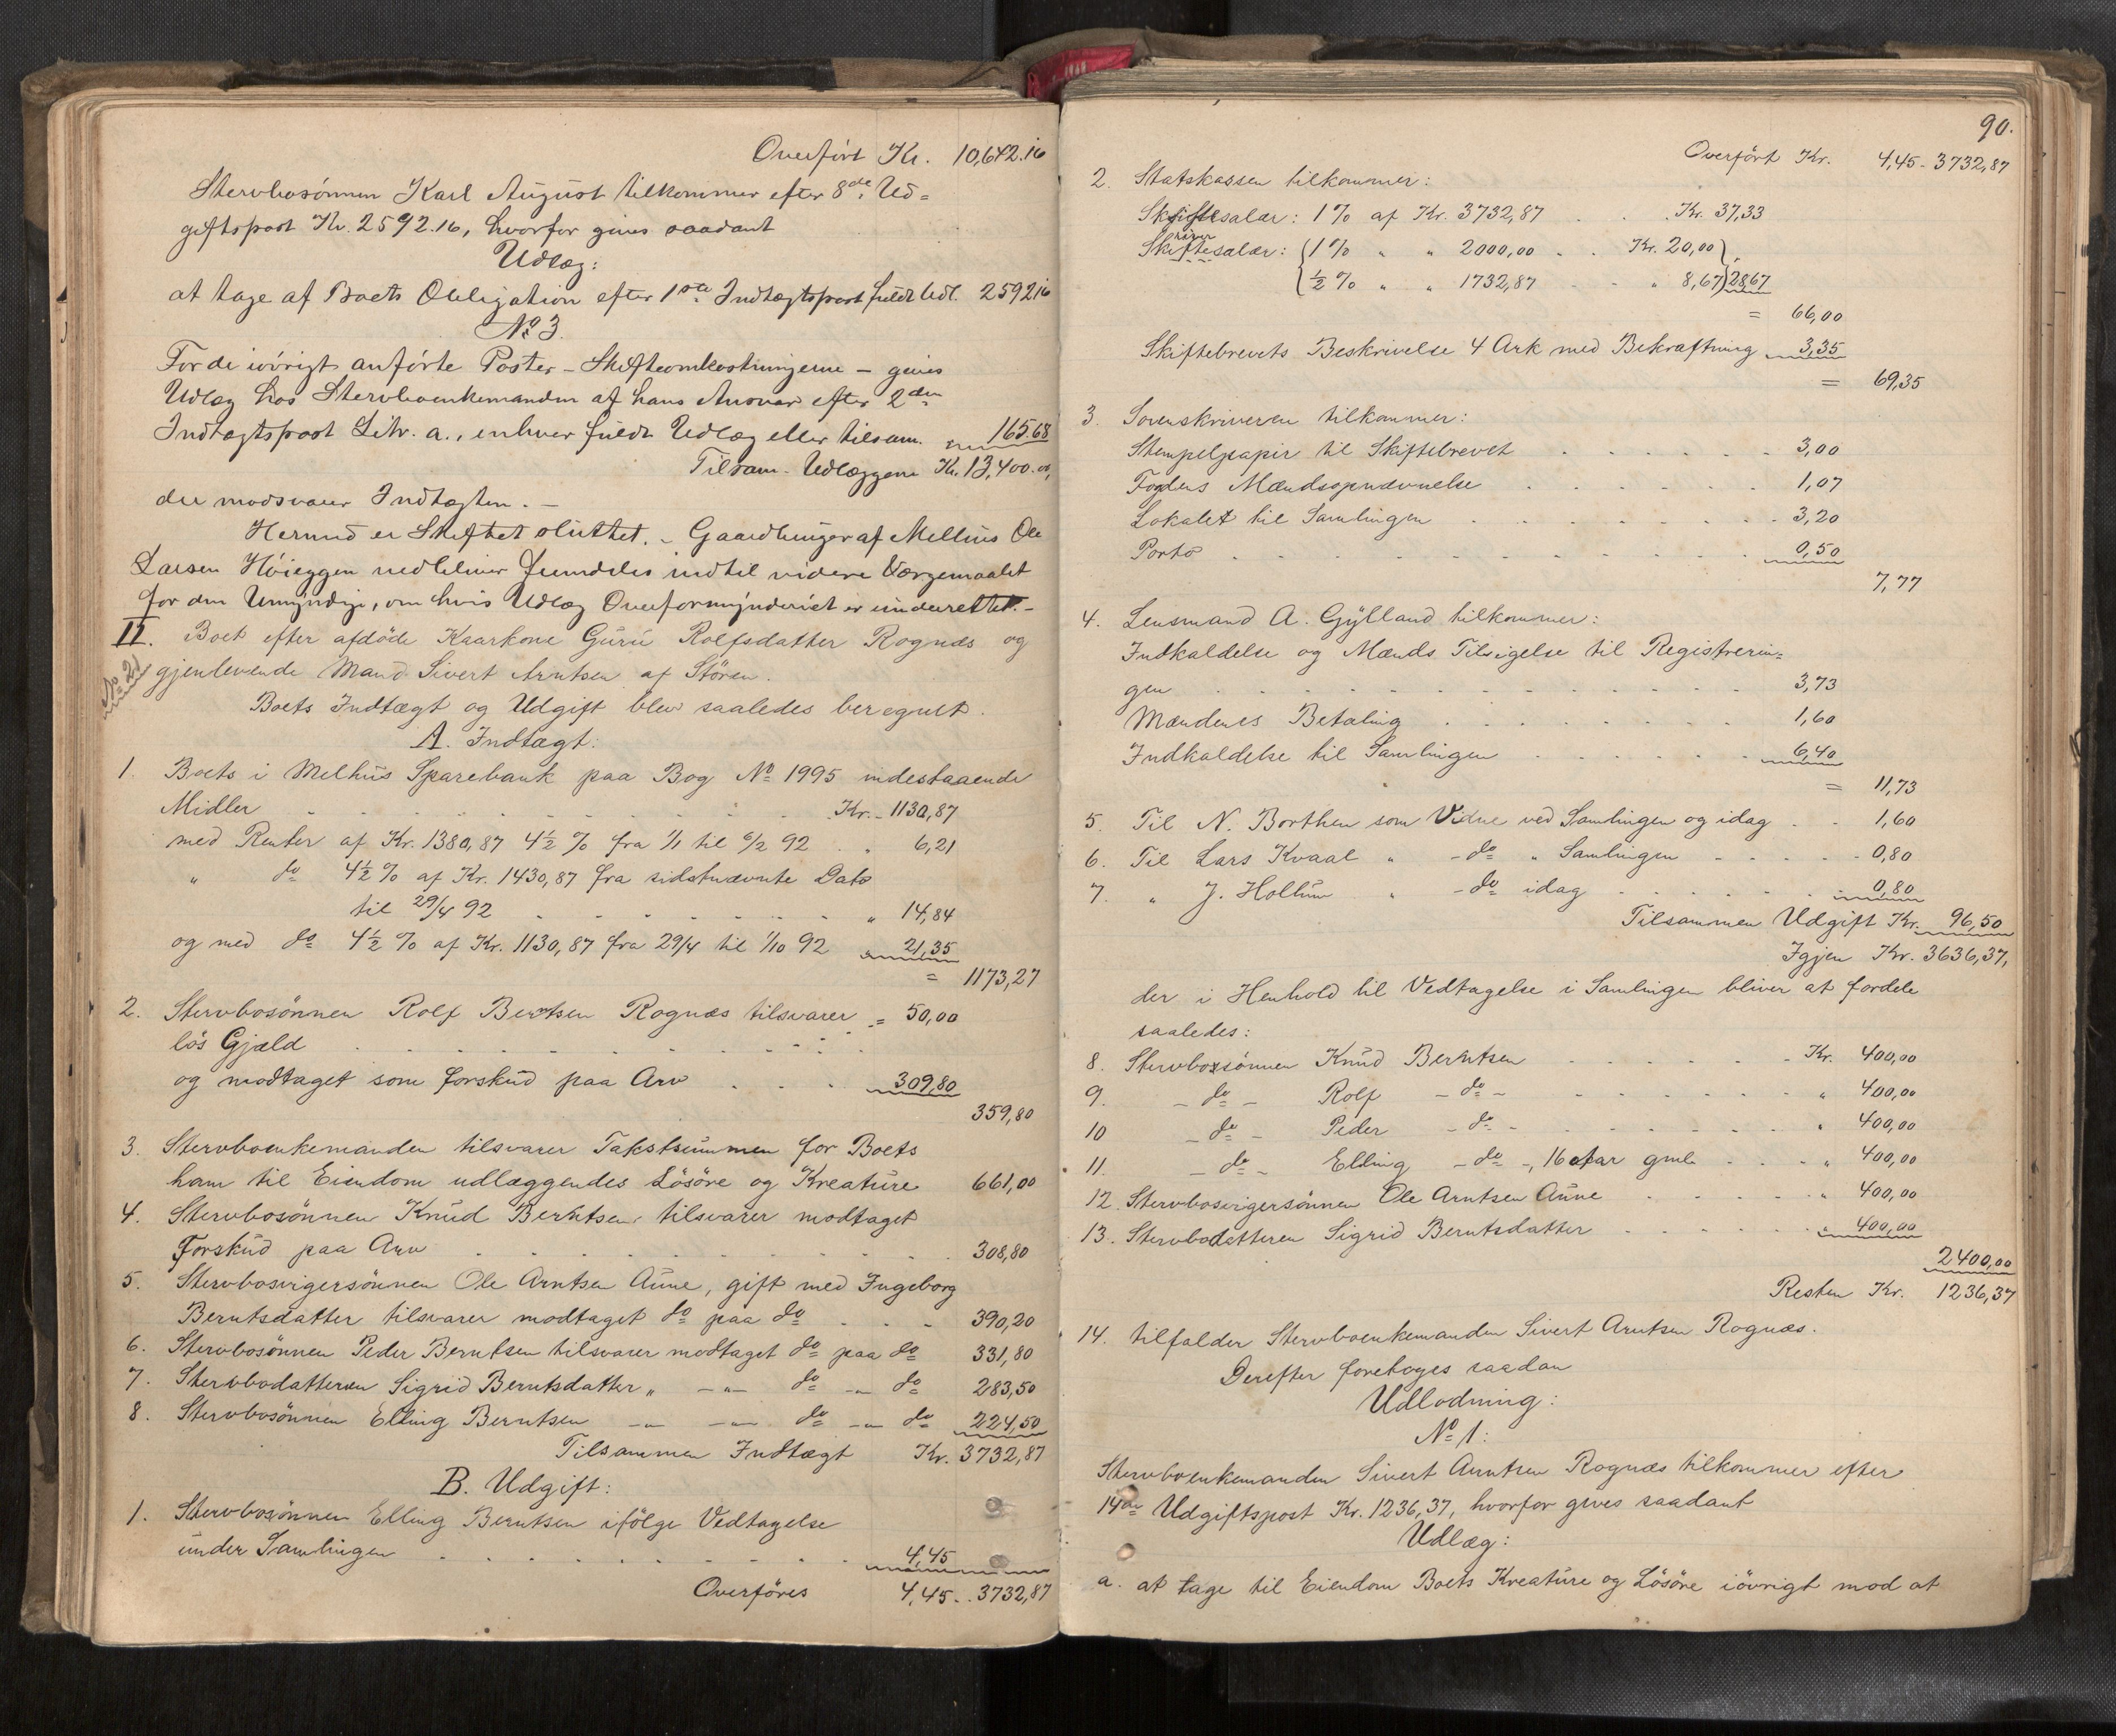 Overført Kr. 10,642.16
Stervbosønnen Karl August tilkommer efter 8de Ud=
giftspost Kr. 2592.16, hvorfor gives saadant
Udlæg:
at tage af Boets Obligation efter 1ste Indtægtspost fuldt Udl. 2592.16
No 3.
For de iøvrigt anførte Poster - Skifteomkostningerne - gives
Udlæg hos Stervboenkemanden af hans Ansvar efter 2den
Indtægtspost Litr. a., enhver fuldt Udlæg eller tilsam. 165.68
Tilsam. Udlæggene Kr. 13,400.00,
der modsvarer Indtægten. -
Hermed er Skiftet sluttet. - Gaardbruger af Melhus Ole
Larsen Høieggen vedbliver fremdeles indtil videre Værgemaalet
for den Umyndige, om hvis Udlæg Overformynderiet er underrettet. -
II. Boet efter afdøde Kaarkone Guru Rolfsdatter Rognæs og
No 21
gjenlevende Mand Sivert Arntsen af Støren.
Boets Indtægt og Udgift blev saaledes beregnet.
A. Indtægt:
1. Boets i Melhus Sparebank paa Bog No 1995 indestaaende
Midler Kr. 1130,87
med Renter af Kr. 1380,87 4½ % fra 1/1 til 6/2 92 " 6,21
" do 4½ % af Kr. 1430,87 fra sidstnævnte Dato
til 29/4 92 " 14,84
og med do 4½ % af Kr. 1130,87 fra 29/4 til 1/10 92 " 21,35
= 1173,27
2. Stervbosønnen Rolf Berntsen Rognæs tilsvarer = 50,00
løs Gjæld
og modtaget som forskud paa Arv 309,80
359,80
3. Stervboenkemanden tilsvarer Takstsummen for Boets
ham til Eiendom udlæggendes Løsøre og Kreature 661,00
4. Stervbosønnen Knud Berntsen tilsvarer modtaget
Forskud paa Arv 308,80
5. Stervbosvigersønnen Ole Arntsen Aune, gift med Ingeborg
Berntsdatter tilsvarer modtaget do paa do 390,20
6. Stervbosønnen Peder Berntsen tilsvarer modtaget do paa do 331,80
7. Stervbodatteren Sigrid Berntsdatter " -"- do -"- do 283,50
8. Stervbosønnen Elling Berntsen -"- -"- do -"- do 224,50
Tilsammen Indtægt Kr. 3732,87
B. Udgift:
1. Stervbosønnen Elling Berntsen ifølge Vedtagelse
under Samlingen 4,45
Overføres 4,45 - 3732,87
90.
Overført Kr. 4,45 - 3732,87
2. Statskassen tilkommer:
Skiftesalær: 1 % af Kr. 3732,87 Kr. 37,33
Skriversalær: { 1 % " " 2000,00 Kr. 20,00 }
{ ½ % " " 1732,87 " 8,67 } 28,67
= 66,00
Skiftebrevets Beskrivelse 4 Ark med Bekræftning 3,35
= 69,35
3. Sorenskriveren tilkommer:
Stempelpapir til Skiftebrevet 3,00
Fogdens Mændsopnævnelse 1,07
Lokalet til Samlingen 3,20
Porto 0,50
7,77
4. Lensmand A. Gylland tilkommer:
Indkaldelse og Mænds Tilsigelse til Registrerin=
gen 3,73
Mændenes Betaling 1,60
Indkaldelse til Samlingen 6,40
= 11,73
5. Til N. Borthen som Vidne ved Samlingen og idag 1,60
6. Til Lars Kvaal " - do " Samlingen 0,80
7. " J. Hollum " - do idag 0,80
Tilsammen Udgift Kr. 96,50
Igjen Kr. 3636,37,
der i Henhold til Vedtagelse i Samlingen bliver at fordele
saaledes:
8. Stervbosønnen Knud Berntsen Kr. 400,00
9. - do - Rolf - do - " 400,00
10 - do - Peder - do - " 400,00
11. - do - Elling - do -, 16 Aar gml. " 400,00
12. Stervbosvigersønnen Ole Arntsen Aune " 400,00
13. Stervbodatteren Sigrid Berntsdatter " 400,00
2400,00
Resten Kr. 1236,37
14. tilfalder Stervboenkemanden Sivert Arntsen Rognæs.
Derefter foretoges saadan
Udlodning:
No 1:
Stervboenkemanden Sivert Arntsen Rognæs tilkommer efter
14de Udgiftspost Kr. 1236,37, hvorfor gives saadant
Udlæg:
a. at tage til Eiendom Boets Kreature og Løsøre iøvrigt mod at